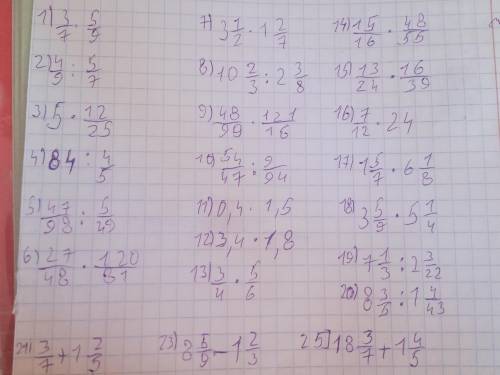 1) 3/7 · 5/9
2) 4/9 : 5/7
3) 5 · 12/25
4) 84 : 4/5
5) 47/98 : 5/49
6) 27/48 · 120/81
7) 3 1/2 · 1 2/7
8) 10 2/3 : 2 3/8
9) 48/99 · 121/16
10) 54/47 : 9/94
11) 0,4 · 1,5
12) 3,4 · 1,8
13) 3/4 · 5/6
14) 15/16 · 48/55
15) 13/24 · 16/39
16) 7/12 · 24
17) 1 5/7 · 6 1/8
18) 3 5/9 · 5 1/4
19) 7 1/3 : 2 3/22
20) 8 3/5 : 1 4/43
21) 3/7 + 1 2/3
23) 8 5/9 - 1 2/3
25] 18 3/7 + 1 4/5